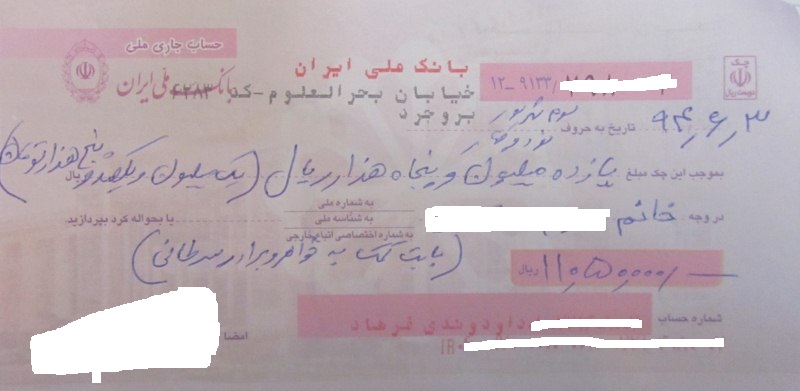 حساب جاری ملی
بانک ملی ایران
بانک ملی ایران
چک
۱۲-۹۱۳۳/
خیابان بحرالعلوم-کد ۶۲۸۳
بروجرد
۹۴٫۶٫۳
تاریخ به حروف سوم شهریور نود و چهار
بموجب این چک مبلغ یازده میلیون و پنجاه هزار ریال (یک میلیون و یکصد و پنج هزار تومان) ریال
در وجه خانم
به شماره ملی
به شناسه ملی
به شماره اختصاصی اتباع خارجی
یا بحواله کرد بپردازید
(بابت کمک به خواهر و برادر سرطانی)
ریال ۱۱۰۵۰۰۰۰/
شماره حساب
داودوندی فرهاد
امضا
IR